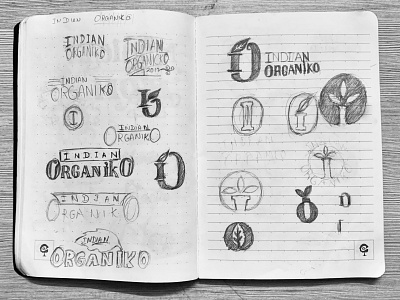 INDIAN ORGANIKO
INDIAN
ORGANIKO
INDIAN
ORGANICKO
INDIAN
ORGANIKO
I
INDIAN
ORGANIKO
INDIAN
ORGANIKO
INDIAN
ORGANIKO
INDIAN
ORGANIKO
INDIAN
ORGANIKO
I
I
I